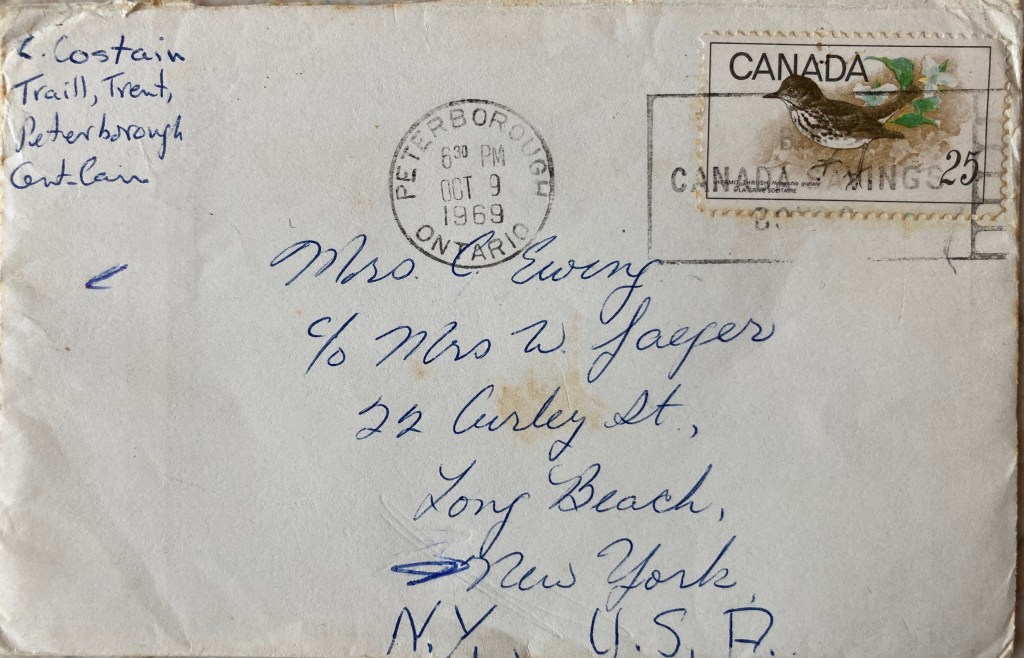 C. Costain
Traill, Trent,
Peterborough
Ont-Can
PETERBOROUGH
6 30 PM
OCT 9
1969
ONTARIO
CANADA
25
HERMIT THRUSH
LA GRIVE SOLITAIRE
CANADA SAVINGS
Mrs. C. Ewing
c/o Mrs W. Jaeger
22 Curley St.,
Long Beach,
New York,
N.Y. U.S.A.